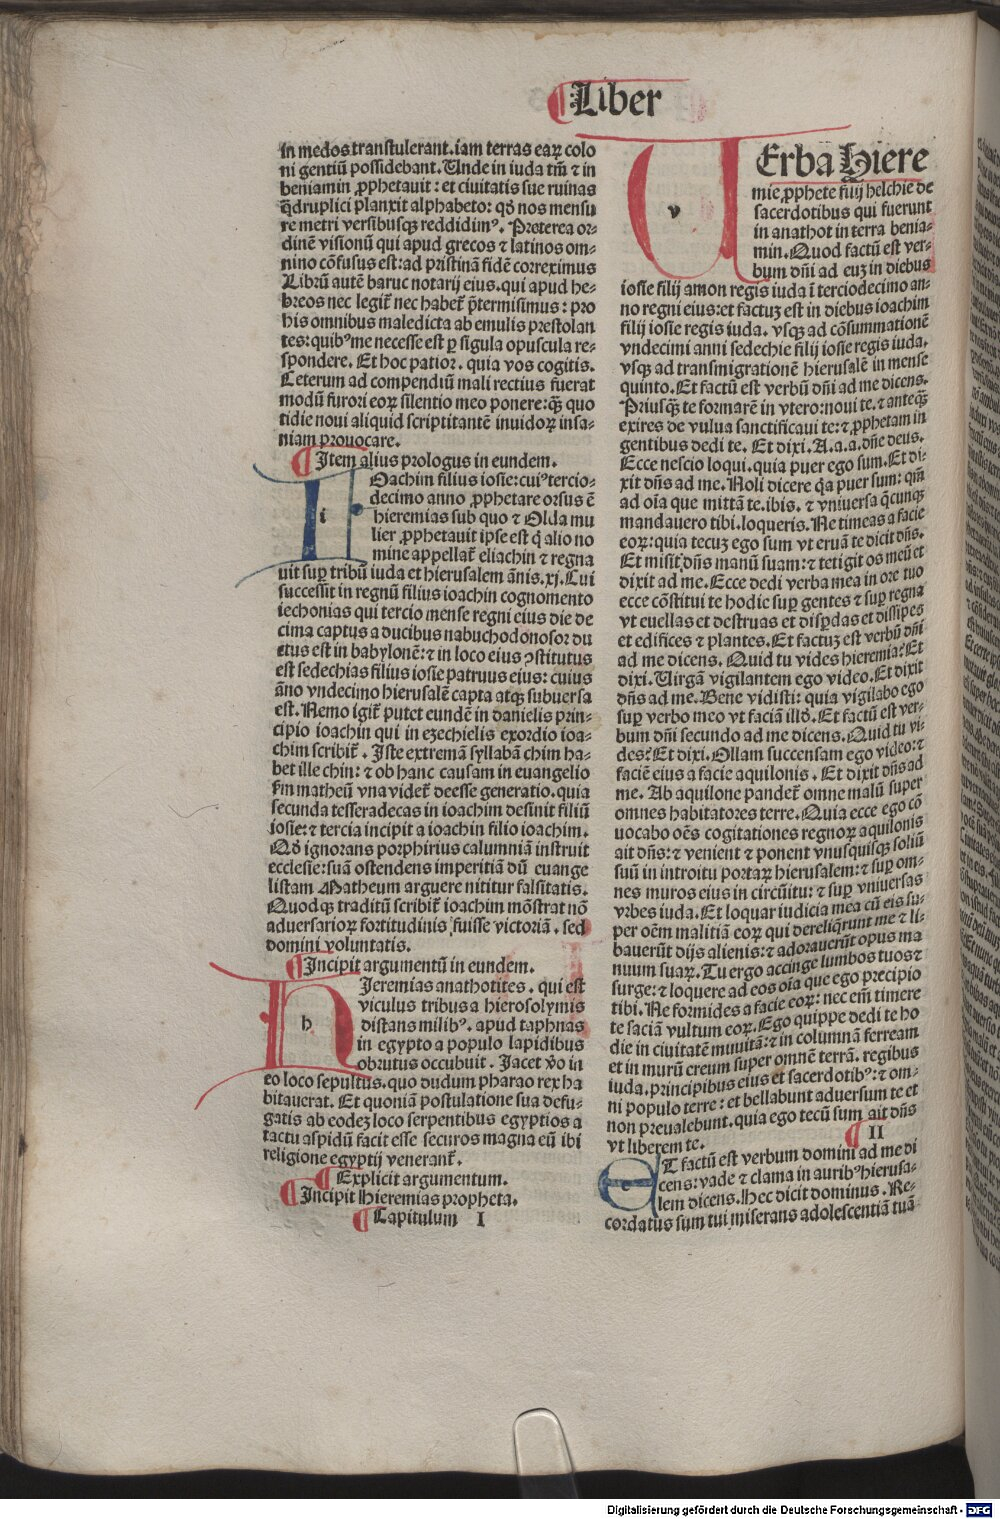 Liber
in medos transtulerant. iam terras eaꝝ colo
ni gentiū possidebant. Unde in iuda tm̄ ⁊ in
beniamin ꝓphetauit : et ciuitatis sue ruinas
q̄druplici planxit alphabeto: qđ nos mensu
re metri versibusqꝫ reddidimꝰ. Preterea or-
dinē visionū qui apud grecos ⁊ latinos om-
nino cōfusus est: ad pristinā fidē correximus
Librū autē baruc notarij eius. qui apud he-
breos nec legit̄ nec habet̄ p̄termisimus : pro
his omnibus maledicta ab emulis prestolan
tes: quibꝰ me necesse est ꝑ sigula opuscula re-
spondere. Et hoc patior. quia vos cogitis.
Ceterum ad compendiū mali rectius fuerat
modū furori eoꝝ silentio meo ponere: qꝫ̄ quo
tidie noui aliquid scriptitantē inuidoꝝ insa-
niam prouocare.
¶ Item alius prologus in eundem.
i Oachim filius iosie: cuiꝰ tercio-
decimo anno ꝓphetare orsus ē
hieremias sub quo ⁊ Olda mu
lier ꝓphetauit ipse est q̄ alio no
mine appellat̄ eliachin ⁊ regna
uit suꝑ tribū iuda et hierusalem ānis. xj. Cui
successit in regnū filius ioachin cognomento
iechonias qui tercio mense regni eius die de
cima captus a ducibus nabuchodonosor du
ctus est in babylonē: ⁊ in loco eius ꝯstitutus
est sedechias filius iosie patruus eius: cuius
āno vndecimo hierusalē capta atqꝫ subuersa
est. Nemo igit̄ putet eundē in danielis prin-
cipio ioachin qui in ezechielis exordio ioa-
chim scribit̄. Iste extremā syllabā chim ha-
bet ille chin: ⁊ ob hanc causam in euangelio
km̄ matheū vna videt̄ deesse generatio. quia
secunda tesseradecas in ioachim desinit filiū
iosie: ⁊ tercia incipit a ioachin filio ioachim.
Qđ ignorans porphirius calumniā instruit
ecclesie: suā ostendens imperitiā dū euange
listam Matheum arguere nititur falsitatis.
Quodqꝫ traditū scribit̄ ioachim mōstrat nō
aduersarioꝝ fortitudinis fuisse victoriā. sed
domini voluntatis.
¶ Incipit argumentū in eundem.
h Ieremias anathotites. qui est
viculus tribus a hierosolymis
distans milibꝰ. apud taphnas
in egypto a populo lapidibus
obrutus occubuit. Jacet v̄o in
eo loco sepultus. quo dudum pharao rex ha
bitauerat. Et quoniā postulatione sua defu-
gatis ab codeꝫ loco serpentibus egyptios a
tactu aspidū facit esse securos magna eū ibi
religione egyptij venerant̄.
¶ Explicit argumentum.
¶ Incipit Hieremias propheta.
¶ Capitulum I
v Erba Hiere
mie ꝓphete filij helchie de
sacerdotibus qui fuerunt
in anathot in terra benia-
min. Quod factū est ver-
bum dn̄i ad euꝫ in diebus
iosie filij amon regis iuda ī terciodecimo an-
no regni eius: et factuꝫ est in diebus ioachim
filij iosie regis iuda. vsqꝫ ad cōsummationē
vndecimi anni sedechie filij iosie regis iuda.
vsqꝫ ad transmigrationē hierusalē in mense
quinto. Et factū est verbū dn̄i ad me dicens.
Priusqꝫ̄ te formarē in vtero: noui te. ⁊ anteqꝫ̄
exires de vulua sanctificaui te: ⁊ ꝓphetam in
gentibus dedi te. Et dixi. A.a.a. dn̄e deus.
Ecce nescio loqui. quia puer ego sum. Et di-
xit dn̄s ad me. Noli dicere q̄a puer sum: qm̄
ad oīa que mittā te. ibis. ⁊ vniuersa q̄cunqꝫ
mandauero tibi. loqueris. Ne timeas a facie
eoꝝ: quia tecuꝫ ego sum vt eruā te dicit dn̄s.
Et misit dn̄s manū suam: ⁊ tetigit os meū et
dixit ad me. Ecce dedi verba mea in ore tuo
ecce cōstitui te hodie suꝑ gentes ⁊ suꝑ regna
vt euellas et destruas et disꝑdas et dissipes
et edifices ⁊ plantes. Et factuꝫ est verbū dn̄i
ad me dicens. Quid tu vides hieremia? Et
dixi. Uirgā vigilantem ego video. Et dixit
dn̄s ad me. Bene vidisti: quia vigilabo ego
suꝑ verbo meo vt faciā illđ. Et factū est ver-
bum dn̄i secundo ad me dicens. Quid tu vi-
des? Et dixi. Ollam succensam ego video: ⁊
faciē eius a facie aquilonis. Et dixit dn̄s ad
me. Ab aquilone pandet̄ omne malū super
omnes habitatores terre. Quia ecce ego cō
uocabo oēs cogitationes regnoꝝ aquilonis
ait dn̄s: ⁊ venient ⁊ ponent vnusquisqꝫ soliū
suū in introitu portaꝝ hierusalem: ⁊ suꝑ om-
nes muros eius in circūitu: ⁊ suꝑ vniuersas
vrbes iuda. Et loquar iudicia mea cū eis su-
per oēm malitiā eoꝝ qui dereliq̄runt me ⁊ li-
bauerūt dijs alienis: ⁊ adorauerūt opus ma
nuum suaꝝ. Tu ergo accinge lumbos tuos ⁊
surge: ⁊ loquere ad eos oīa que ego precipio
tibi. Ne formides a facie eoꝝ: nec em̄ timere
te faciā vultum eoꝝ. Ego quippe dedi te ho
die in ciuitatē muuitā: ⁊ in columnā ferream
et in murū ereum super omnē terrā. regibus
iuda. principibus eius et sacerdotibꝰ: ⁊ om-
ni populo terre: et bellabunt aduersum te et
non preualebunt. quia ego tecū sum ait dn̄s
vt liberem te.
¶ II
ET factū est verbum domini ad me di
cens: vade ⁊ clama in auribꝰ hierusa-
lem dicens. Hec dicit dominus. Re-
cordatus sum tui miserans adolescentiā tuā
Digitalisierung gefördert durch die Deutsche Forschungsgemeinschaft - DFG